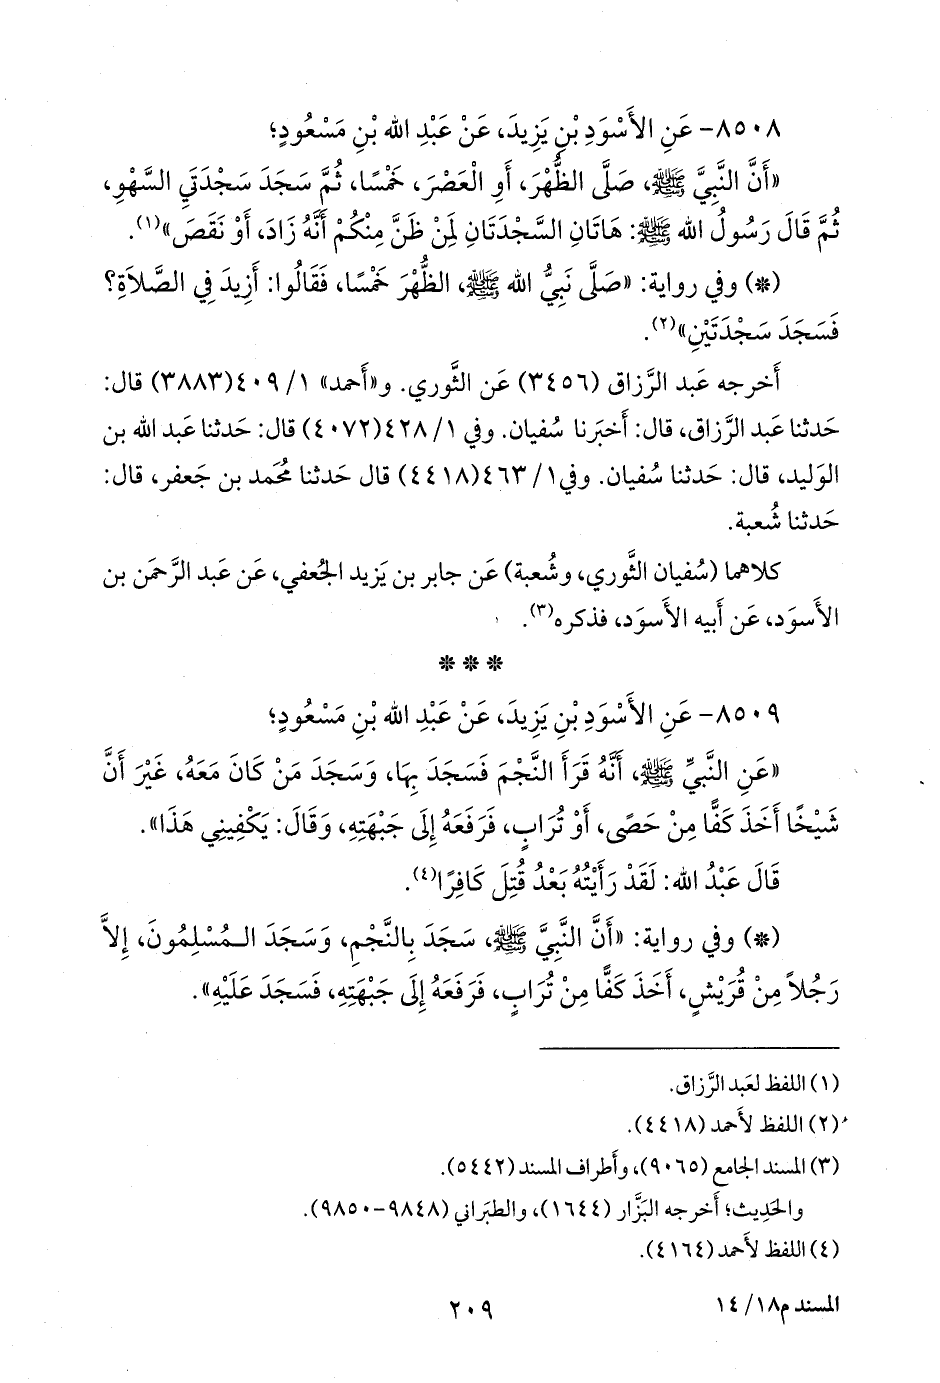 ٨٥٠٨- عَنِ الأَسْوَدِ بْنِ يَزِيدَ، عَنْ عَبْدِ الله بْنِ مَسْعُودٍ؛
«أَنَّ النَّبِيَّ ﷺ، صَلَّى الظُّهْرَ، أَوِ الْعَصْرَ، خَمْسًا، ثُمَّ سَجَدَ سَجْدَتَيِ السَّهْوِ،
ثُمَّ قَالَ رَسُولُ الله ﷺ: هَاتَانِ السَّجْدَتَانِ لِمَنْ ظَنَّ مِنْكُمْ أَنَّهُ زَادَ، أَوْ نَقَصَ»(١).
(*) وفي رواية: «صَلَّى نَبِيُّ الله ﷺ، الظُّهْرَ خَمْسًا، فَقَالُوا: أَزِيدَ فِي الصَّلاَةِ؟
فَسَجَدَ سَجْدَتَيْنِ»(٢).
أَخرجه عَبد الرَّزاق (٣٤٥٦) عَن الثَّوري. و«أَحمد» ١/ ٤٠٩(٣٨٨٣) قال:
حَدثنا عَبد الرَّزاق، قال: أَخبَرنا سُفيان. وفي ١/ ٤٢٨(٤٠٧٢) قال: حَدثنا عَبد الله بن
الوَليد، قال: حَدثنا سُفيان. وفي١/ ٤٦٣(٤٤١٨) قال حَدثنا مُحمد بن جَعفر، قال:
حَدثنا شُعبة.
كلاهما (سُفيان الثَّوري، وشُعبة) عَن جابر بن يَزيد الجُعفي، عَن عَبد الرَّحمَن بن
الأَسوَد، عَن أَبيه الأَسوَد، فذكره(٣).
* * *
٨٥٠٩- عَنِ الأَسْوَدِ بْنِ يَزِيدَ، عَنْ عَبْدِ الله بْنِ مَسْعُودٍ؛
«عَنِ النَّبِيِّ ﷺ، أَنَّهُ قَرَأَ النَّجْمَ فَسَجَدَ بِهَا، وَسَجَدَ مَنْ كَانَ مَعَهُ، غَيْرَ أَنَّ
شَيْخًا أَخَذَ كَفًّا مِنْ حَصًى، أَوْ تُرَابٍ، فَرَفَعَهُ إِلَى جَبْهَتِهِ، وَقَالَ: يَكْفِينِي هَذَا».
قَالَ عَبْدُ الله: لَقَدْ رَأَيْتُهُ بَعْدُ قُتِلَ كَافِرًا(٤).
(*) وفي رواية: «أَنَّ النَّبِيَّ ﷺ، سَجَدَ بِالنَّجْمِ، وَسَجَدَ الْمُسْلِمُونَ، إِلاَّ
رَجُلاً مِنْ قُرَيْشٍ، أَخَذَ كَفًّا مِنْ تُرَابٍ، فَرَفَعَهُ إِلَى جَبْهَتِهِ، فَسَجَدَ عَلَيْهِ».
(١) اللفظ لعَبد الرَّزاق.
(٢) اللفظ لأَحمد (٤٤١٨).
(٣) المسند الجامع (٩٠٦٥)، وأَطراف المسند (٥٤٤٢).
والحَدِيث؛ أَخرجه البَزَّار (١٦٤٤)، والطبَراني (٩٨٤٨-٩٨٥٠).
(٤) اللفظ لأَحمد (٤١٦٤).
المسند م١٨/ ١٤
٢٠٩